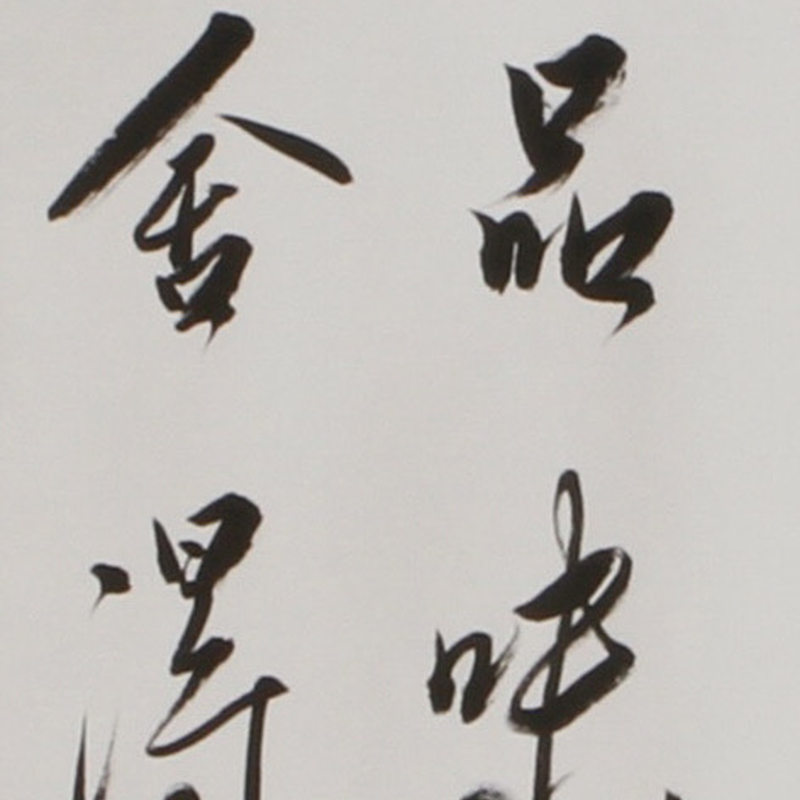 品味
舍得